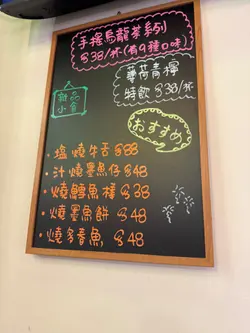 手搖烏龍茶系列
$38/杯(有9種口味)
蘘荷青檸
特飲$38/杯
甜品
小食
おすすめ
• 塩燒牛舌$88
• 汁燒墨魚仔$48
• 燒鱈魚樣$38
• 燒墨魚餅$48
• 燒多春魚$48